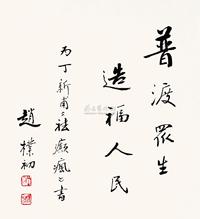 普渡眾生
造福人民
为丁新甫之祛癫疯之書
趙樸初